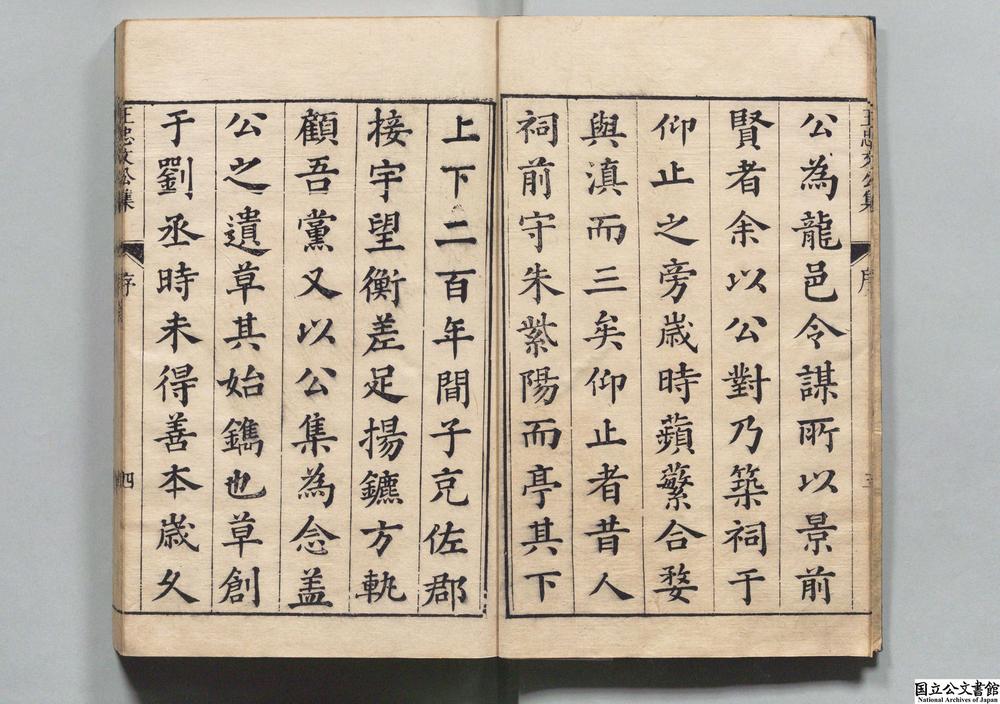 王忠文公集
序
公為龍邑令謀所以景前
賢者余以公對乃築祠于
仰止之旁歲時蘋蘩合婺
與滇而三矣仰止者昔人
祠前守朱紫陽而亭其下
上下二百年間子克佐郡
接宇望衡差足揚鑣方軌
顧吾黨又以公集為念蓋
公之遺草其始鐫也草創
于劉丞時未得善本歲久
王忠文公集
序
四
国立公文書館
National Archives of Japan